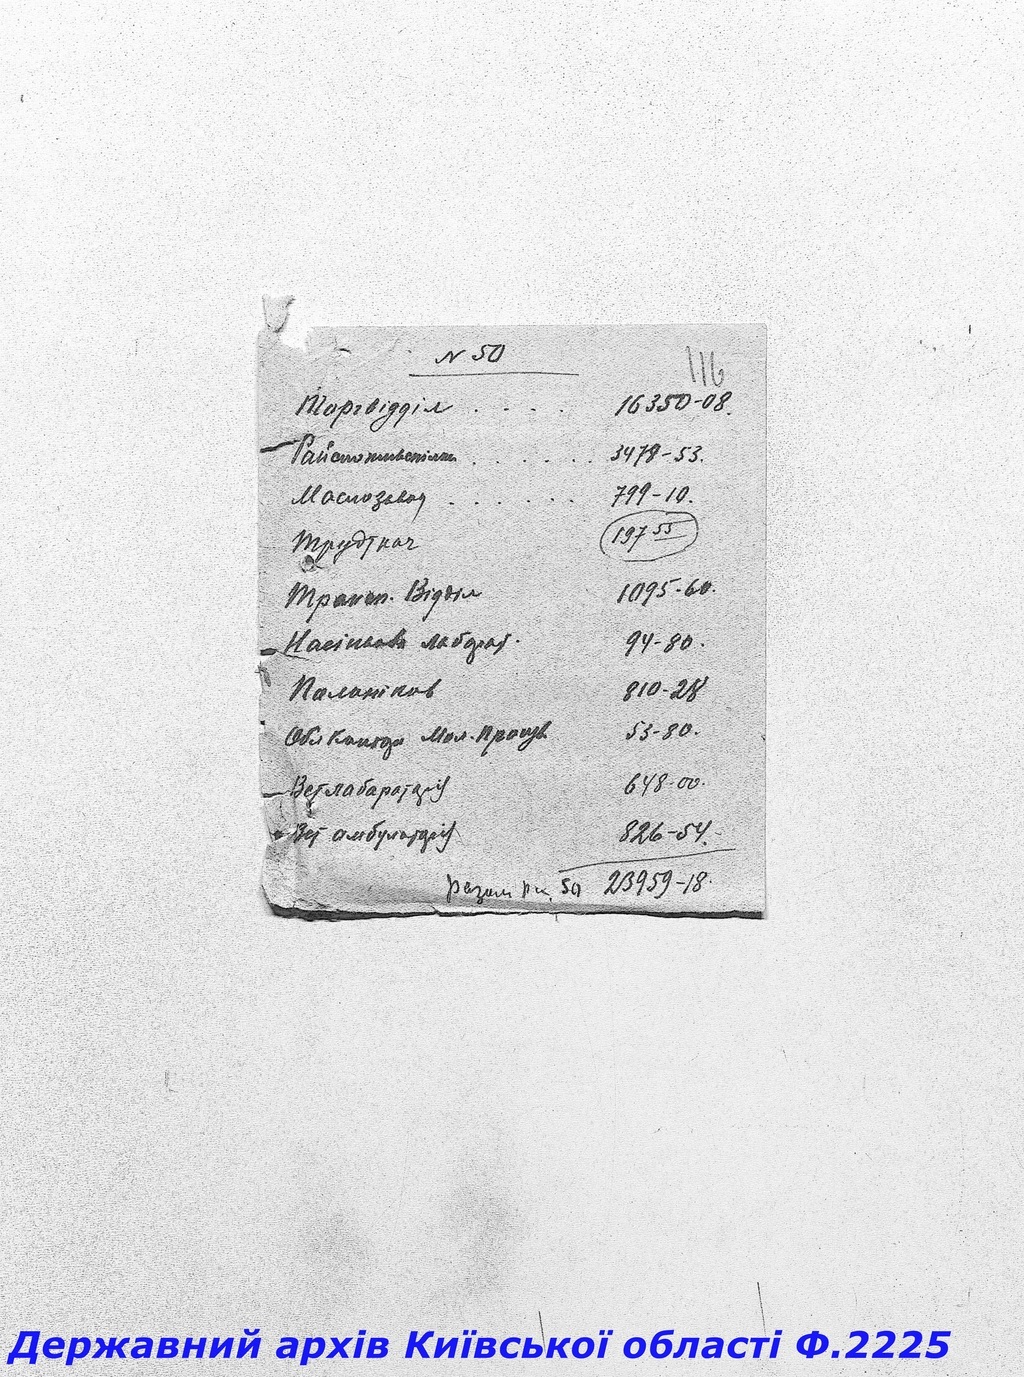 N 50
116
Торгвідділ . . . . 16350-08.
Райспоживспілка . . . . . . 3478-53.
Маслозавод . . . . . . 799-10.
197 55
Трансп. Відділ 1095-60.
Насіннєва лаборат. 94-80.
810-28
Обл Контора Мол. 53-80.
Ветлабараторія 648-00.
Вет амбулаторія 826-54.
разом рах. 50 23959-18.
Державний архів Київської області Ф.2225